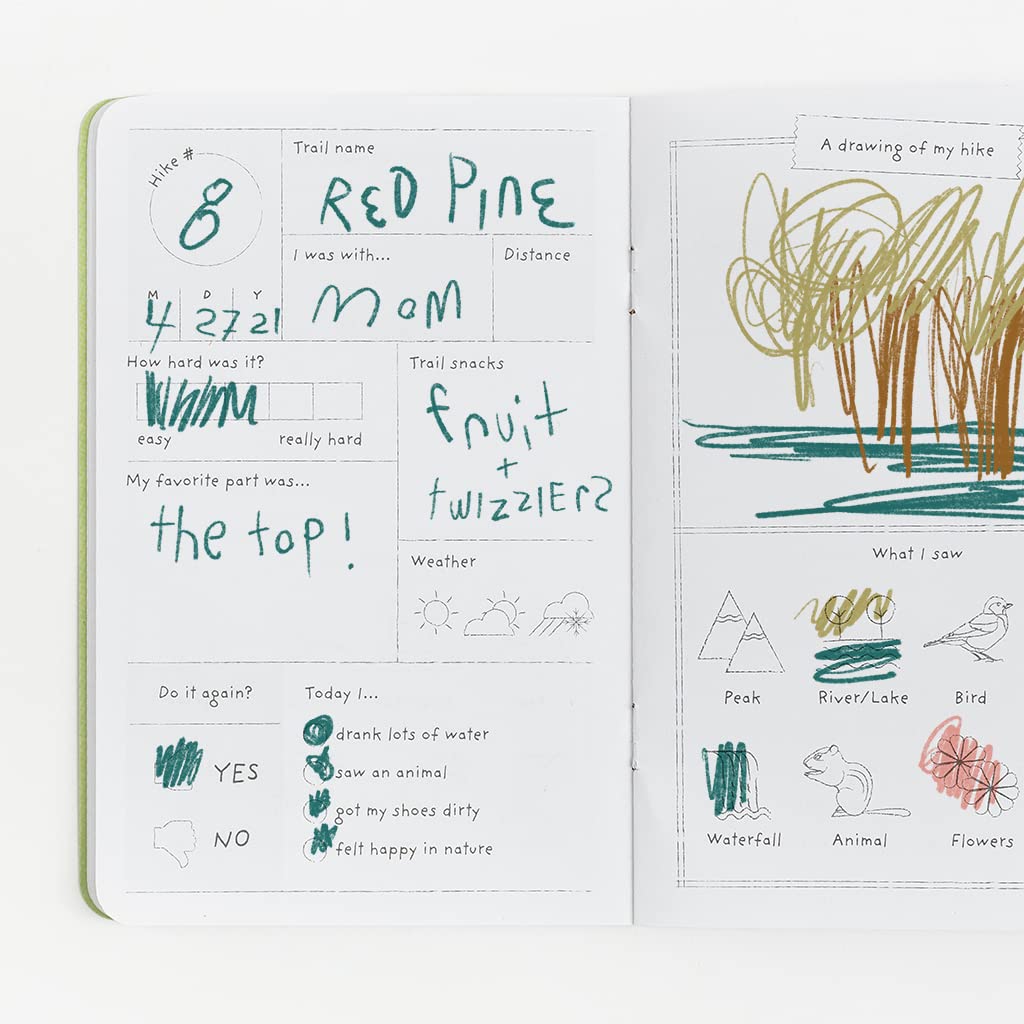 Hike #
8
M D Y
4 27 21
Trail name
RED PINE
I was with...
MOM
Distance
How hard was it?
easy
really hard
Trail snacks
fruit
+
twizzlers
My favorite part was...
the top!
Weather
Do it again?
YES
NO
Today I...
drank lots of water
saw an animal
got my shoes dirty
felt happy in nature
A drawing of my hike
What I saw
Peak
River/Lake
Bird
Waterfall
Animal
Flowers